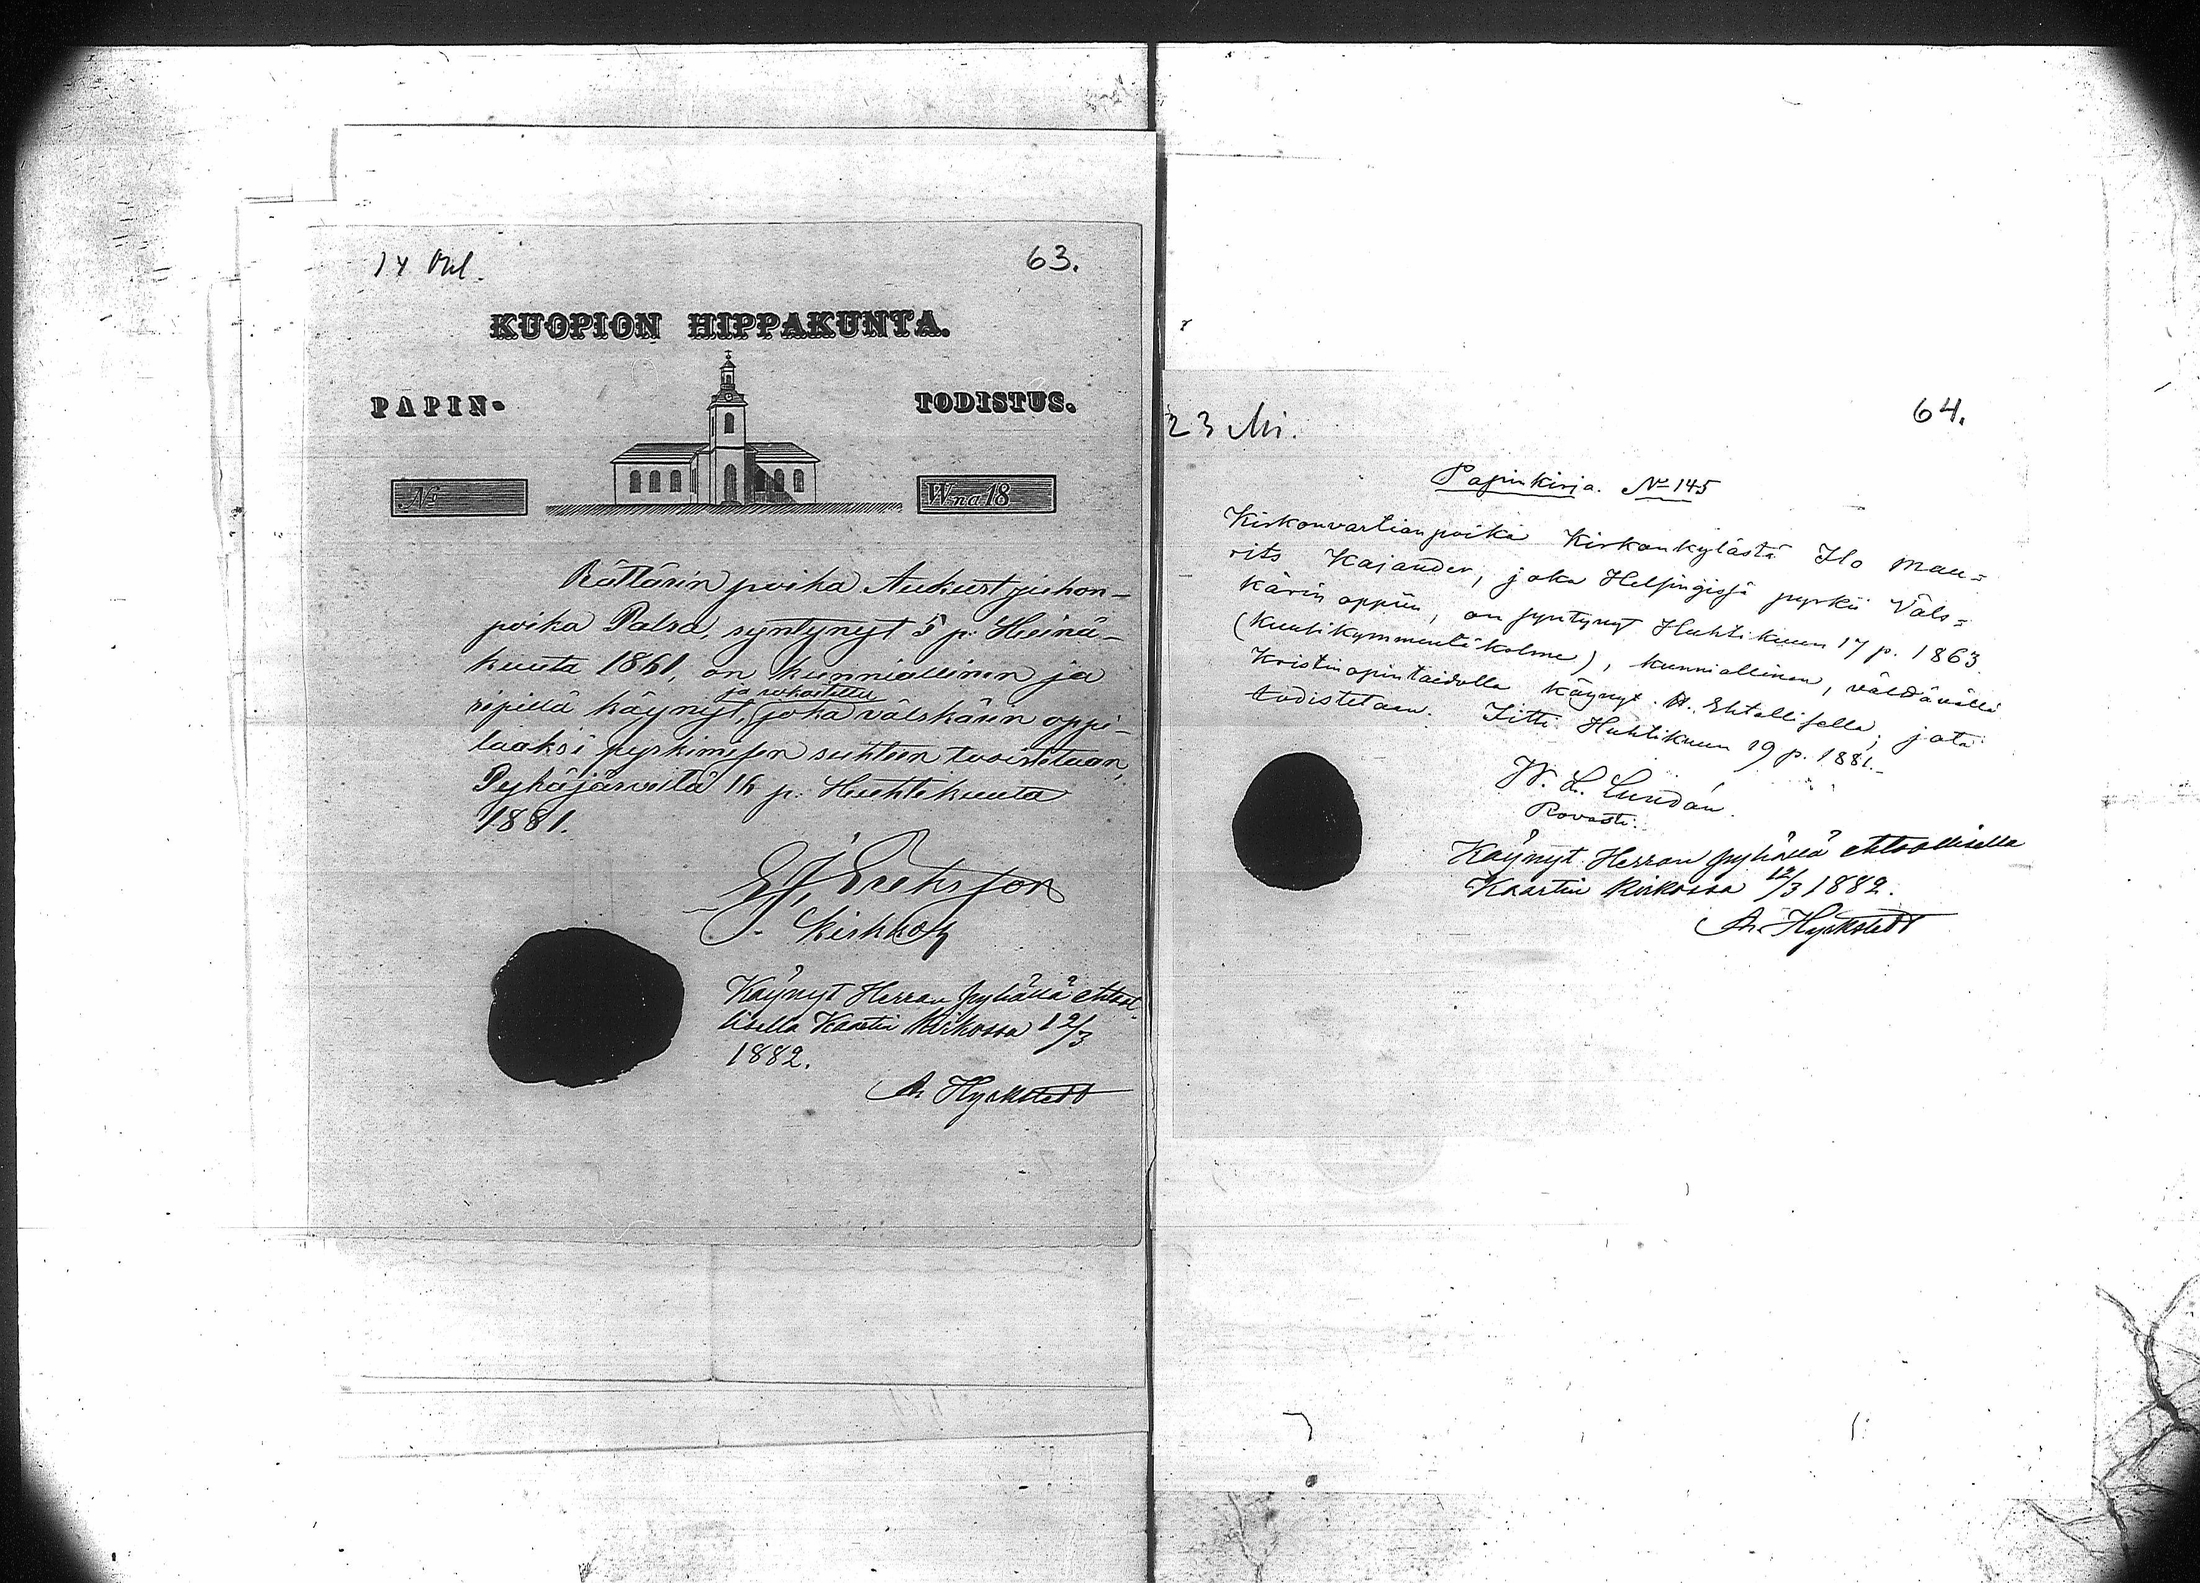 63.
KUOPION HIPPAKUNTA.
PAPIN-
TODISTUS.
No
W:na 18
Rättärin poika Aukust Juhon-
poika Palsa, syntynyt 5 p: Heinä-
kuuta 1861, on kunniallinen ja
ja rokoitettu
ripillä käynyt, joka välskärin oppi-
laaksi pyrkimisen suhteen todistetaan,
Pyhäjärveltä 16 p: Huhtikuuta
1881.
Kirkkoh
Käynyt Herran pyhällä ehtool-
lisella Kaartin Kirkossa 12/3
1882.
A. Hyrkstedt
64.
23
Papinkirja. No 145
Kirkonvartianpoika Kirkonkylästä Ilo Mau=
rits Kajander, joka Helsingissä pyrkii Väls=
kärin oppiin, on syntynyt Huhtikuun 17 p. 1863
(kuusikymmentäkolme), kunniallinen, välttävällä
Kristinopintaidolla käynyt H. Ehtollisella; jota
todistetaan. Iitti Huhtikuun 19 p. 1881.-
W. L. Lundán.
Rovasti.
Käynyt Herran pyhällä ehtoollisella
Kaartin Kirkossa 12/3 1882.
A. Hyrkstedt